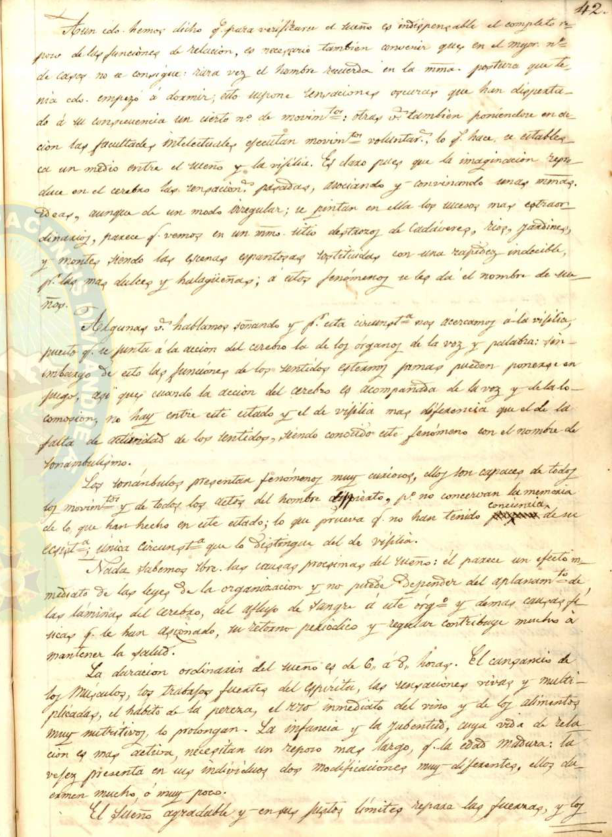 42.
Aun cdo. hemos dicho q. para verificarse el sueño es indispensable el completo re-
poso de las funciones de relacion, es necesario tambien convenir que en el mayor no.
de casos no se consigue: rara vez el hombre recuerda en la mma. postura que te-
nia cdo. empezó á dormir; esto supone sensaciones oscuras que han disperta-
do á su consecuencia un cierto no. de movintos: otras vs. tambien poniendose en ac-
cion las facultades intelectuales ejecutan movintos voluntars., lo q. hace se establez-
ca un medio entre el sueño y la vijilia. Es claro pues que la imaginacion repro-
duce en el cerebro las sensacions. pasadas, asociando y convinando unas mmas.
ideas, aunque de un modo irregular; se pintan en ella los sucesos mas extraor-
dinarios, parece q. vemos en un mmo. sitio destrozos de Cadáveres, rios, jardines,
y montes siendo las escenas espantosas sostituidas con una rapidez indecible,
pr. las mas dulces y halagüeñas; á estos fenómenos se les dá el nombre de sue-
ños.
Algunas vs. hablamos soñando y pr. esta circunsta. nos acercamos á la vijilia,
puesto q. se junta á la accion del cerebro la de los organos de la voz y palabra: sin
embargo de esto las funciones de los sentidos esternos jamas pueden ponerse en
juego, asi que cuando la accion del cerebro es acompañada de la voz y de la lo-
comocion, no hay entre este estado y el de vijilia mas diferencia que el de la
falta de actividad de los sentidos, siendo conocido este fenómeno con el nombre de
sonámbulismo.
Los sonámbulos presentan fenómenos muy curiosos, ellos son capaces de todos
los movintos y de todos los actos del hombre dispierto, po. no concervan la memoria
de lo que han hecho en este estado; lo que prueva q. no han tenido conciencia de su
ecsista.; única circunsta. que lo distingue del de vijilia.
Nada sabemos sbre. las causas procsimas del sueño: él parece un efecto in-
mediato de las leyes de la organizacion y no puede depender del aplanamto. de
las laminas del cerebro, del aflujo de sangre á este órgo. y demas causas fí-
sicas q. le han asignado, su retorno periódico y regular contribuye mucho á
mantener la salud.
La duracion ordinaria del sueño es de 6 á 8 horas. El cansancio de
los Musculos, los trabajos fuertes del espiritu, las sensaciones vivas y multi-
plicadas, el hábito de la pereza, el uso inmediato del vino y de los alimentos
muy nutritivos, lo prolongan. La infancia y la jubentud, cuya vida de rela-
cion es mas activa, necesitan un reposo mas largo, q. la edad madura: la
vejez presenta en sus individuos dos modificaciones muy diferentes, ellos du-
ermen mucho, o muy poco.
El sueño agradable y en sus justos límites repara las fuerzas, y los